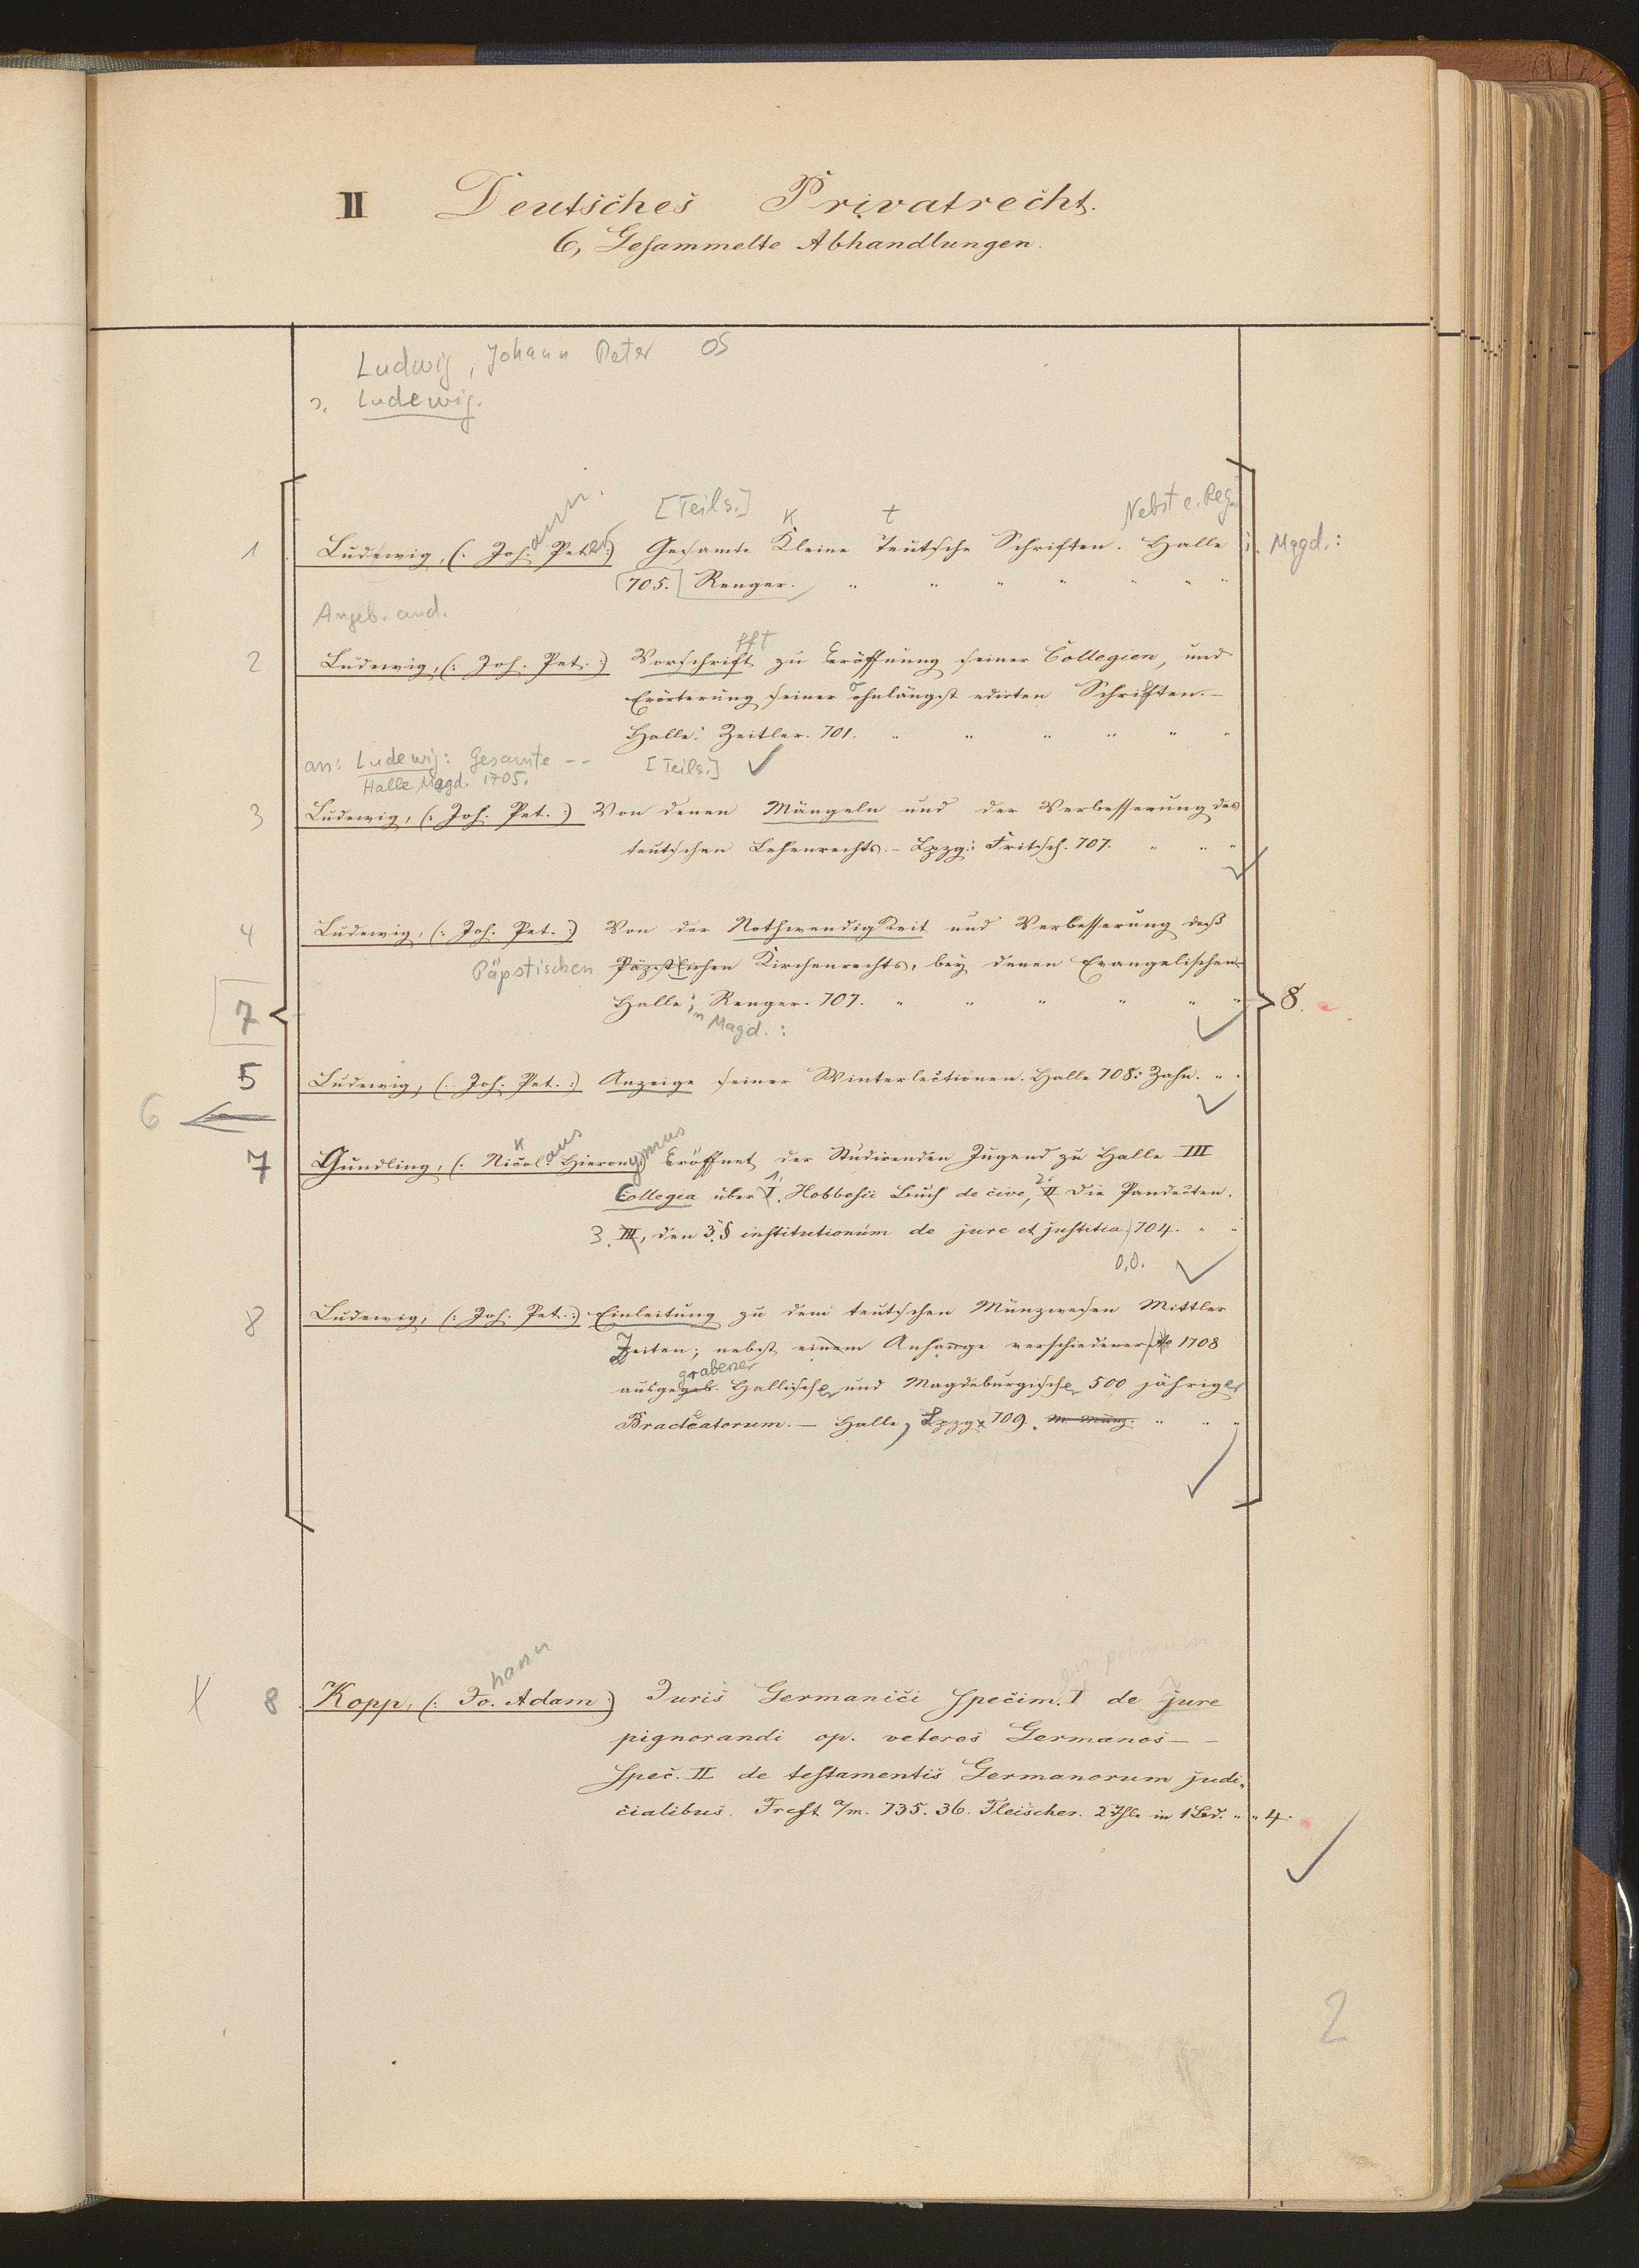 II Deutsches Privatrecht.
6, Gesammelte Abhandlungen.
Ludwig, Johann Peter OS
s. Ludewig.
[Teils.] K t Nebst e. Reg.
1 Ludewig, (: Johann. Peter :) Gesamte Kleine Teutsche Schriften. Halle i. Magd.:
705. Renger. " " " " " " "
Angeb. and.
fft
2 Ludewig, (: Joh. Pet. :) Vorschrift zu Eröffnung seiner Collegien, und
Erörterung seiner ohnlängst edirten Schriften. –
Halle: Zeitler. 701. " " " " " "
an: Ludewig: Gesamte -- [Teils.]
Halle Magd. 1705.
3 Ludewig, (: Joh. Pet. :) Von denen Mängeln und der Verbesserung des
teutschen Lehenrechts. – Lpzg.: Fritsch. 707. " " "
4 Ludewig, (: Joh. Pet. :) Von der Nothwendigkeit und Verbesserung deß
Päpstischen Päpstlichen Kirchenrechts, bey denen Evangelischen
7 Halle: Renger. 707. " " " " " " 8.
in Magd.:
5 Ludewig, (: Joh. Pet. :) Anzeige seiner Winterlectionen. Halle 708: Zahn. " "
6
7 Gundling, (: Nicolaus Hieronymus :) Eröffnet der Studirenden Jugend zu Halle III
Collegia über 1. I, Hobbesii Buch de cive, 2. II Die Pandecten.
3. III, den 3. § institutionum de jure et justitia. 704. " "
o.O.
8 Ludewig, (: Joh. Pet. :) Einleitung zu dem teutschen Münzwesen Mittler
Zeiten; nebst einem Anhange verschiedener Ao 1708
grabener
ausgegeb. Hallischer und Magdeburgischer 500 jähriger
Bracteatorum. – Halle, Lpzg. 709. M. Münz. " " "
X 8 Kopp, (: Johann. Adam :) Juris Germanici specim. I de jure
en primum
pignorandi op. veteres Germanos – –
Spec. II de testamentis Germanorum judi-
cialibus. Frcft a/m. 735. 36. Fleischer. 2 Thle in 1 Bd. " " 4.
2